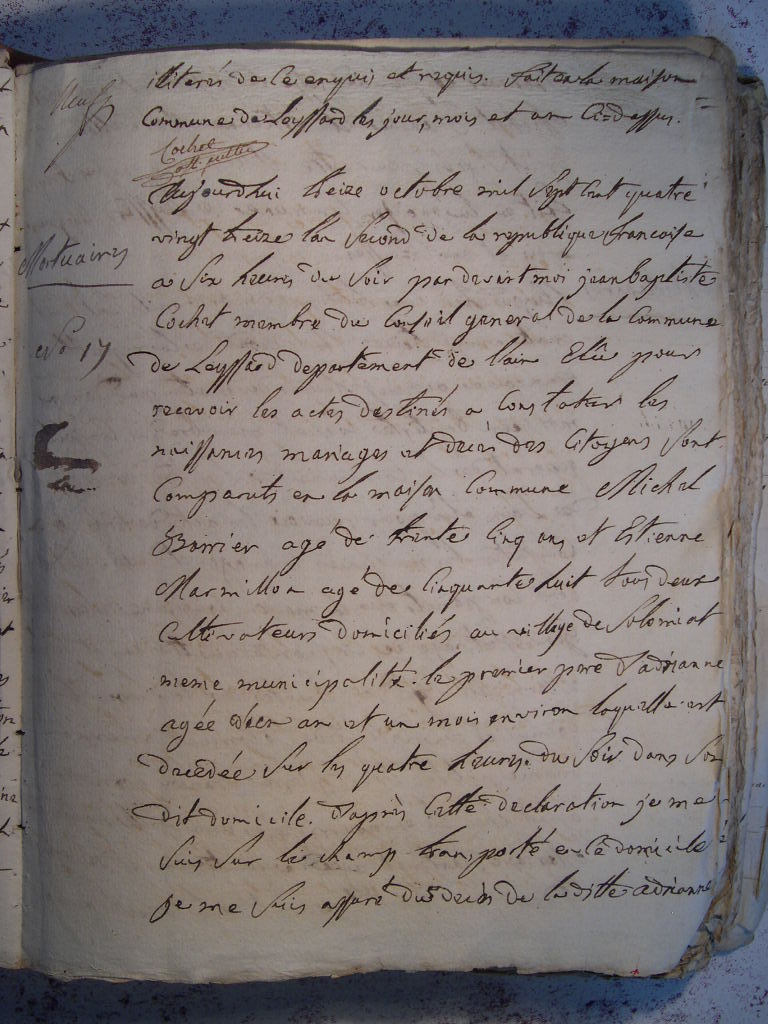 illiterés de ce enquis et requis. fait en la maison
Commune de Leyssard les jour, mois et an Ci=dessus.
Cochet
off. public
Aujourdhui treize octobre mil Sept Cent quatre
vingt treize lan Second de la republique francoise
Mortuaires
a Six heures du Soir par devant moi jean baptiste
Cochet membre du Conseil general de la Commune
No 17
de Leyssard departement de lain Elu pour
recevoir les actes destinés a Constater les
naissances mariages et decès des Citoyens Sont
Comparuts en la maison Commune Michel
Borrier agé de trente Cinq ans et Estienne
Marmillon agé de Cinquante huit tous deux
Cultivateurs domiciliés au village de Solomiat
meme municipalité. le premier pere d'adrianne
agée d'un an et un mois environ laquelle est
decedée Sur les quatre heures du Soir dans Son
dit domicile. d'après Cette declaration je me
Suis Sur le champ transporté en ce domicile
je me Suis assuré du decès de la ditte adrianne